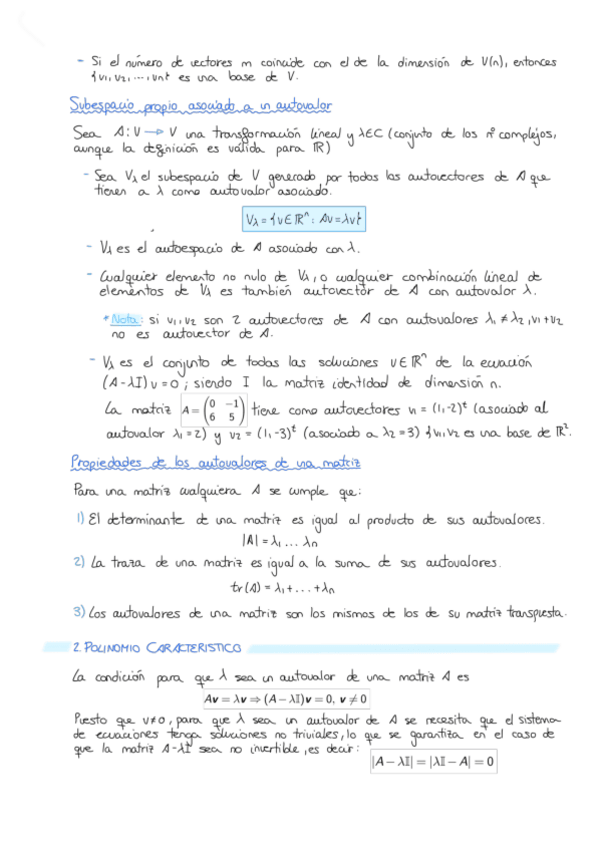 - Si el número de vectores m coincide con el de la dimensión de V(n), entonces
{v1, v2, ..., vn} es una base de V.
Subespacio propio asociado a un autovalor
Sea A: V → V una transformación lineal y λ∈C (conjunto de los nº complejos,
aunque la definición es válida para ℝ)
- Sea Vλ el subespacio de V generado por todos los autovectores de A que
tienen a λ como autovalor asociado.
Vλ = {v∈ℝⁿ : Av = λv}
- Vλ es el autoespacio de A asociado con λ.
- Cualquier elemento no nulo de Vλ, o cualquier combinación lineal de
elementos de Vλ es también autovector de A con autovalor λ.
* Nota: si v1, v2 son 2 autovectores de A con autovalores λ1 ≠ λ2, v1+v2
no es autovector de A.
- Vλ es el conjunto de todas las soluciones v∈ℝⁿ de la ecuación
(A-λI)v = 0; siendo I la matriz identidad de dimensión n.
La matriz A = (0 -1
6 5) tiene como autovectores v1 = (1,-2)ᵗ (asociado al
autovalor λ1=2) y v2 = (1,-3)ᵗ (asociado a λ2=3) {v1,v2 es una base de ℝ².
Propiedades de los autovalores de una matriz
Para una matriz cualquiera A se cumple que:
1) El determinante de una matriz es igual al producto de sus autovalores.
|A| = λ1 ... λn
2) La traza de una matriz es igual a la suma de sus autovalores.
tr(A) = λ1 + ... + λn
3) Los autovalores de una matriz son los mismos de los de su matriz transpuesta.
2. POLINOMIO CARACTERISTICO
La condición para que λ sea un autovalor de una matriz A es
Av = λv ⇒ (A − λ𝕀)v = 0, v ≠ 0
Puesto que v≠0, para que λ sea un autovalor de A se necesita que el sistema
de ecuaciones tenga soluciones no triviales, lo que se garantiza en el caso de
que la matriz A-λI sea no invertible, es decir: |A − λ𝕀| = |λ𝕀 − A| = 0